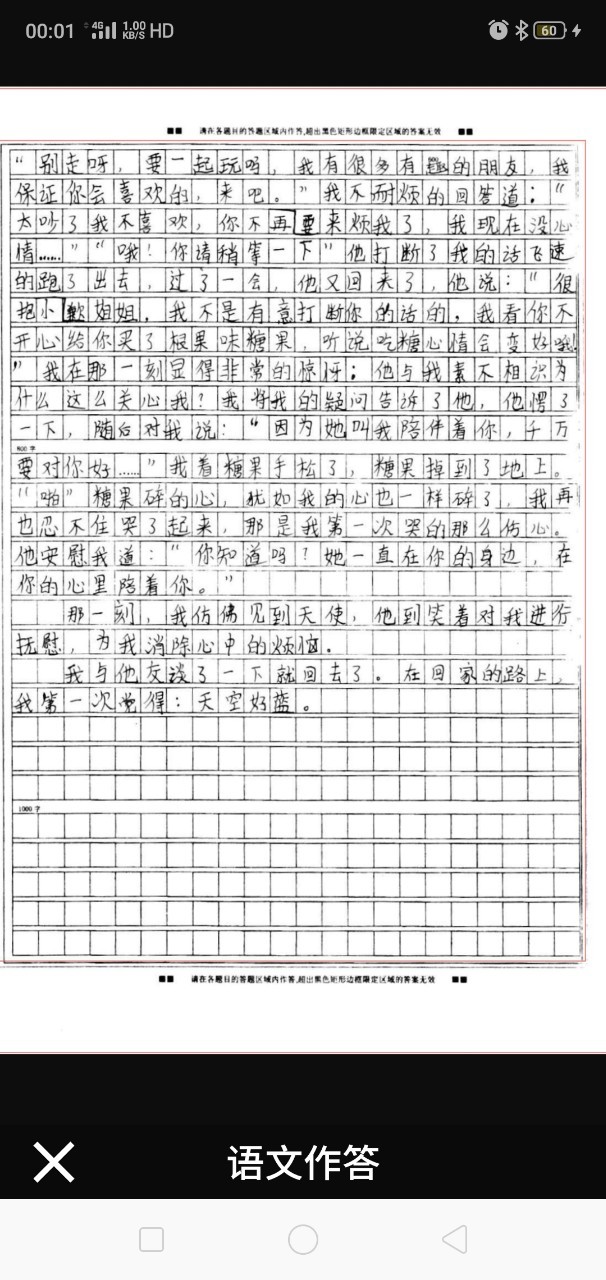 00:01 4G 1.00 KB/S HD 60
请在各题目的答题区域内作答,超出黑色矩形边框限定区域的答案无效
“别走呀，要一起玩吗，我有很多有趣的朋友，我
保证你会喜欢的，来吧。”我不耐烦的回答道：“
太吵了我不喜欢，你不再要来烦我了，我现在没心
情……”“哦！你请稍等一下”他打断了我的话飞速
的跑了出去，过了一会，他又回来了，他说：“很
抱小歉姐姐，我不是有意打断你的话的，我看你不
开心给你买了根果味糖果，听说吃糖心情会变好哦！
”我在那一刻显得非常的惊讶；他与我素不相识为
什么这么关心我？我将我的疑问告诉了他，他愣了
一下，随后对我说：“因为她叫我陪伴着你，千万
800字
要对你好……”我着糖果手松了，糖果掉到了地上。
“啪”糖果碎的心，犹如我的心也一样碎了，我再
也忍不住哭了起来，那是我第一次哭的那么伤心。
他安慰我道：“你知道吗？她一直在你的身边，在
你的心里陪着你。”
那一刻，我仿佛见到天使，他到笑着对我进行
抚慰，为我消除心中的烦恼。
我与他交谈了一下就回去了。在回家的路上，
我第一次觉得：天空好蓝。
1000字
请在各题目的答题区域内作答,超出黑色矩形边框限定区域的答案无效
语文作答